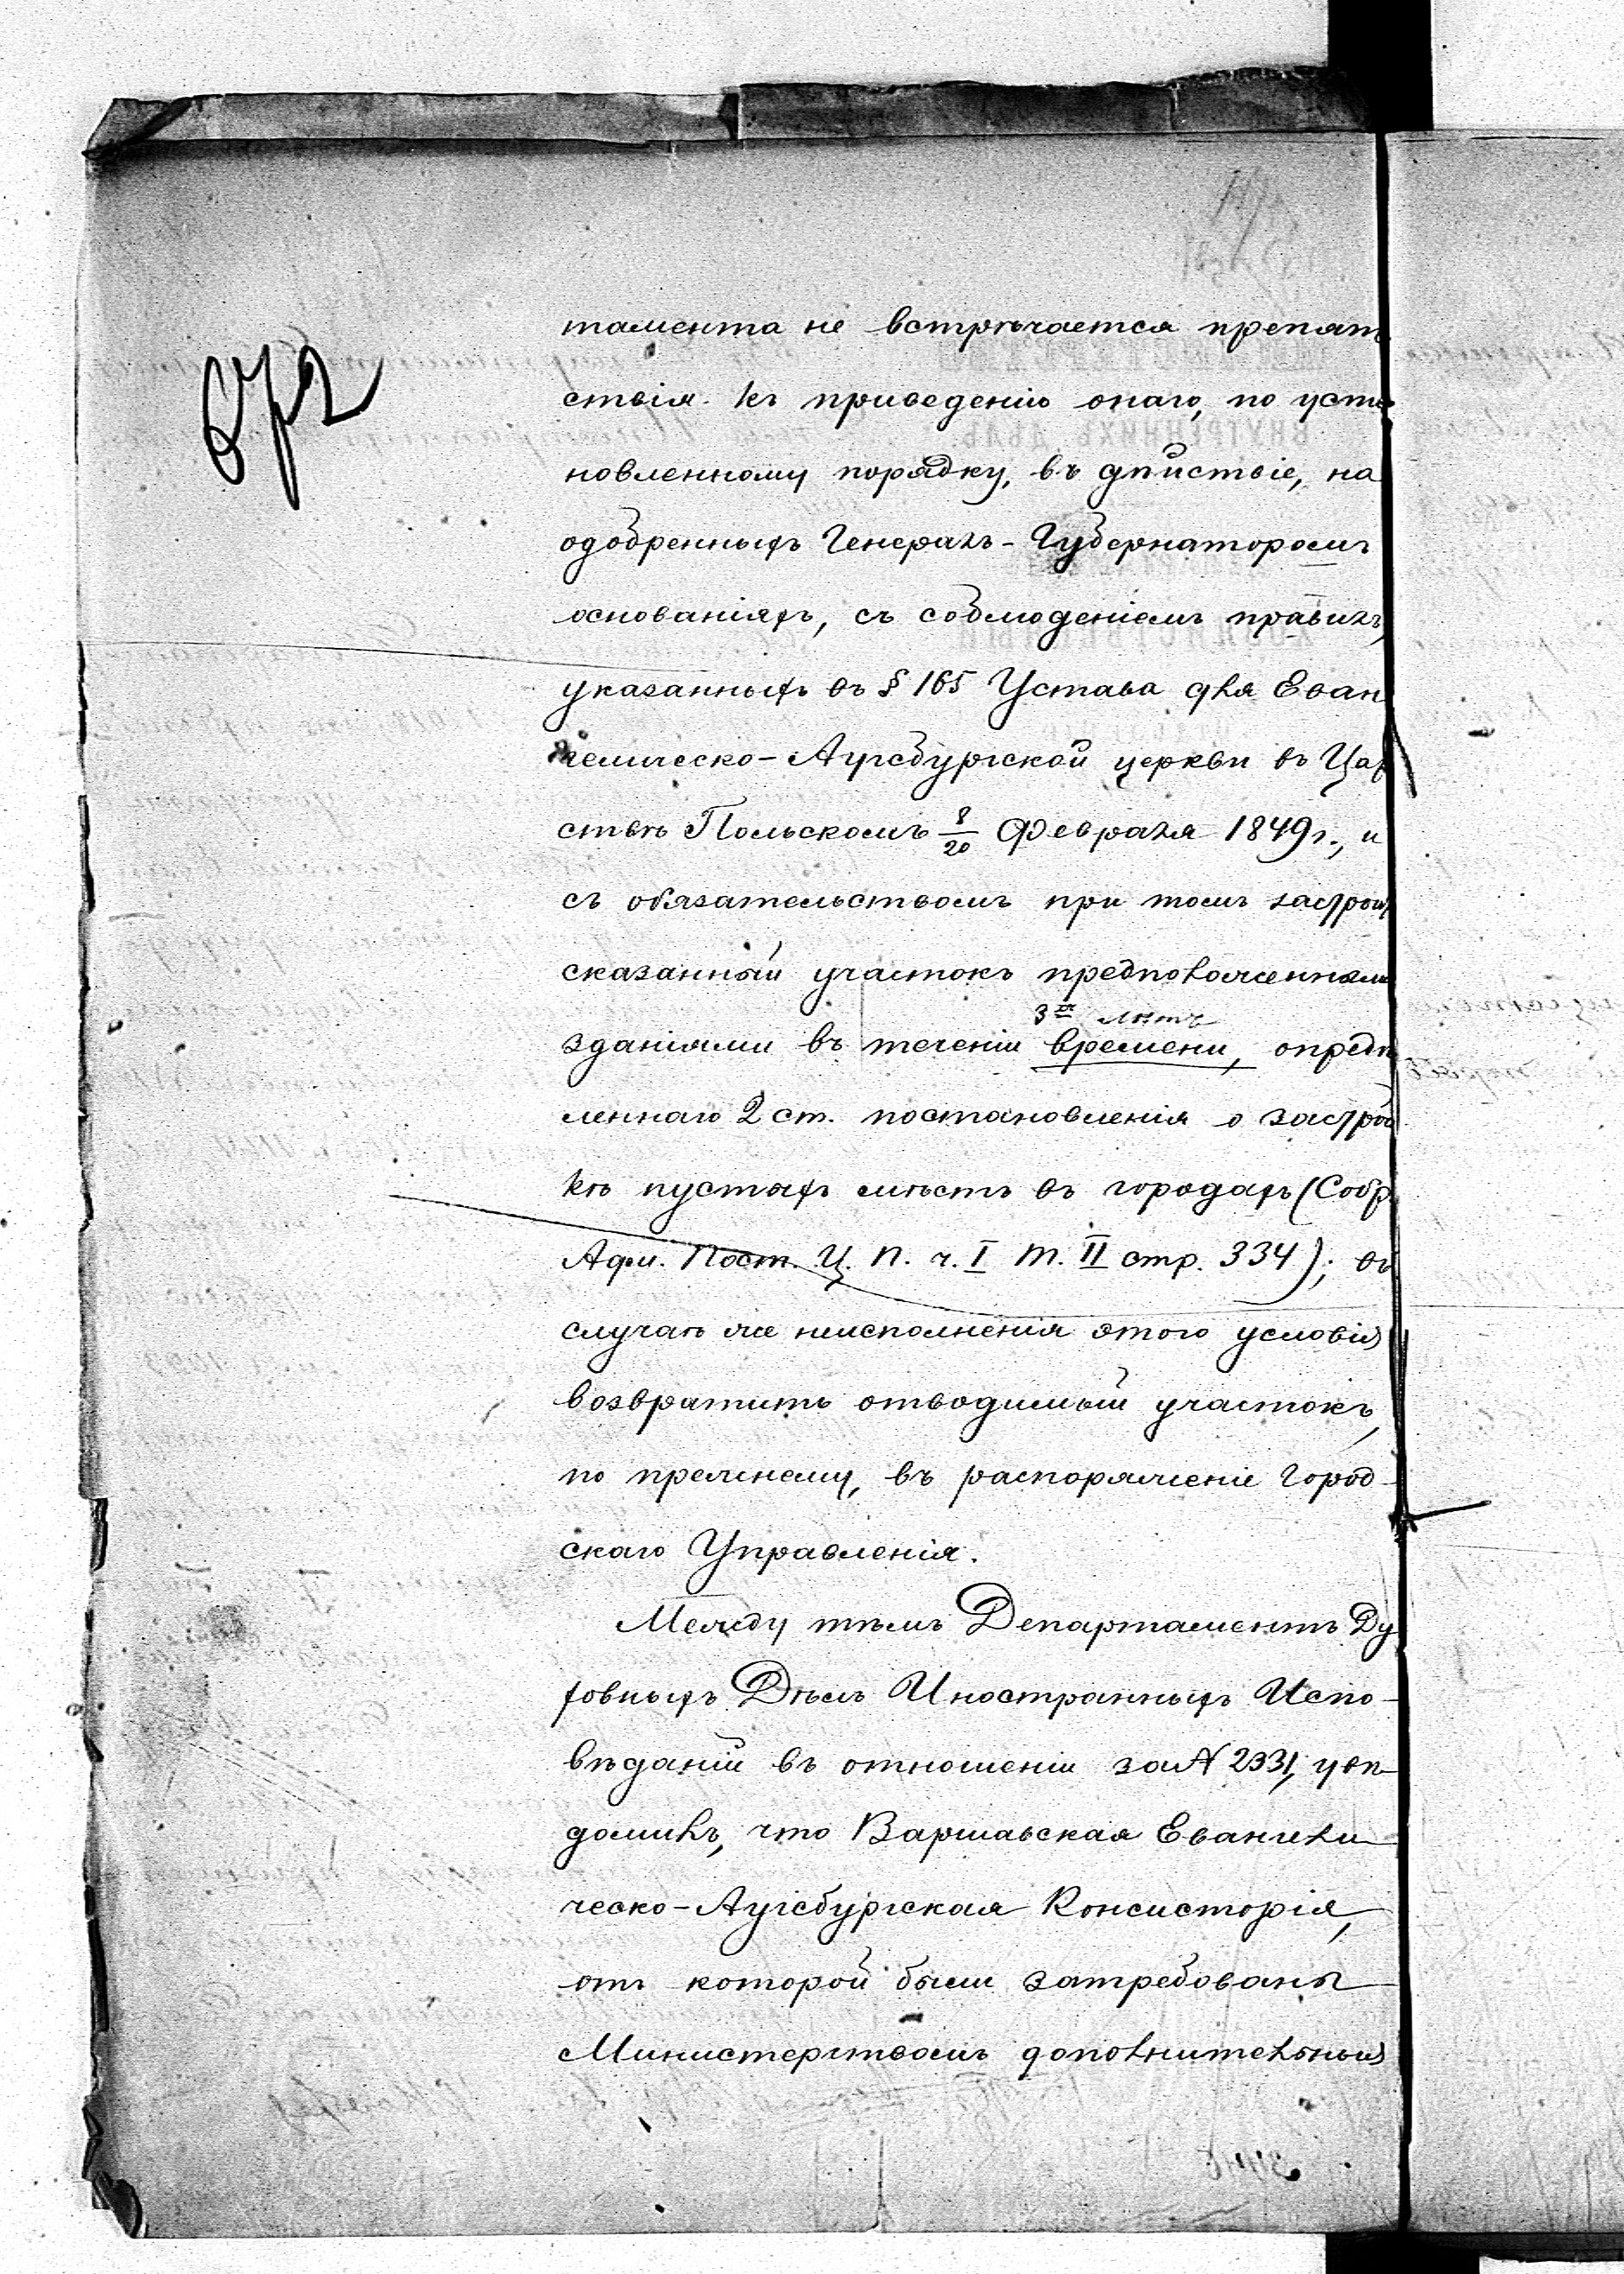 тамента не встрѣчается препят
ствія къ приведенію онаго, по уста
новленному порядку, въ дѣйствіе, на
одобренныхъ Генералъ-Губернаторомъ
основаніяхъ, съ соблюденіемъ правилъ,
указанныхъ въ § 165 Устава для Еван
гелическо-Аугсбургской церкви въ Цар
ствѣ Польскомъ 8/20 Февраля 1849 г., и
съ обязательствомъ при томъ застроить
сказанный участокъ предположенными
3х лѣтъ
зданіями въ теченіи времени, опредѣ
леннаго 2 ст. постановленія о застрой
кѣ пустыхъ мѣстъ въ городахъ (Собр.
Адм. Пост. Ц. П. ч. I т. II стр. 334); въ
случаѣ же неисполненія этого условія
возвратить отводимый участокъ,
по прежнему, въ распоряженіе Город-
скаго Управленія.
Между тѣмъ Департаментъ Ду
ховныхъ Дѣлъ Иностранныхъ Испо-
вѣданій въ отношеніи за № 2331, увѣ-
домилъ, что Варшавская Евангели-
ческо-Аугсбургская Консисторія,
отъ которой были затребованы
Министерствомъ дополнительныя